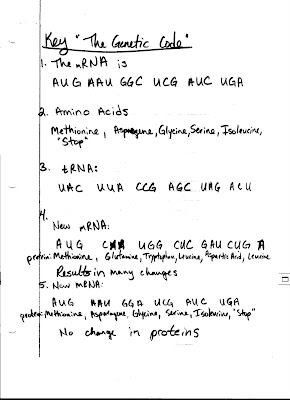 Key "The Genetic Code"
1. The mRNA is
AUG AAU GGC UCG AUC UGA
2. Amino Acids
Methionine, Asparagene, Glycine, Serine, Isoleucine,
"Stop"
3. tRNA:
UAC UUA CCG AGC UAG ACU
4.
New mRNA:
AUG UGG CUC GAU CUG A
protein: Methionine, Glutamine, Tryptophan, Leucine, Aspartic Acid, Leucine
Results in many changes
5. New mRNA:
AUG AAU GGA UCG AUC UGA
protein: Methionine, Asparagene, Glycine, Serine, Isoleucine, "Stop"
No change in proteins